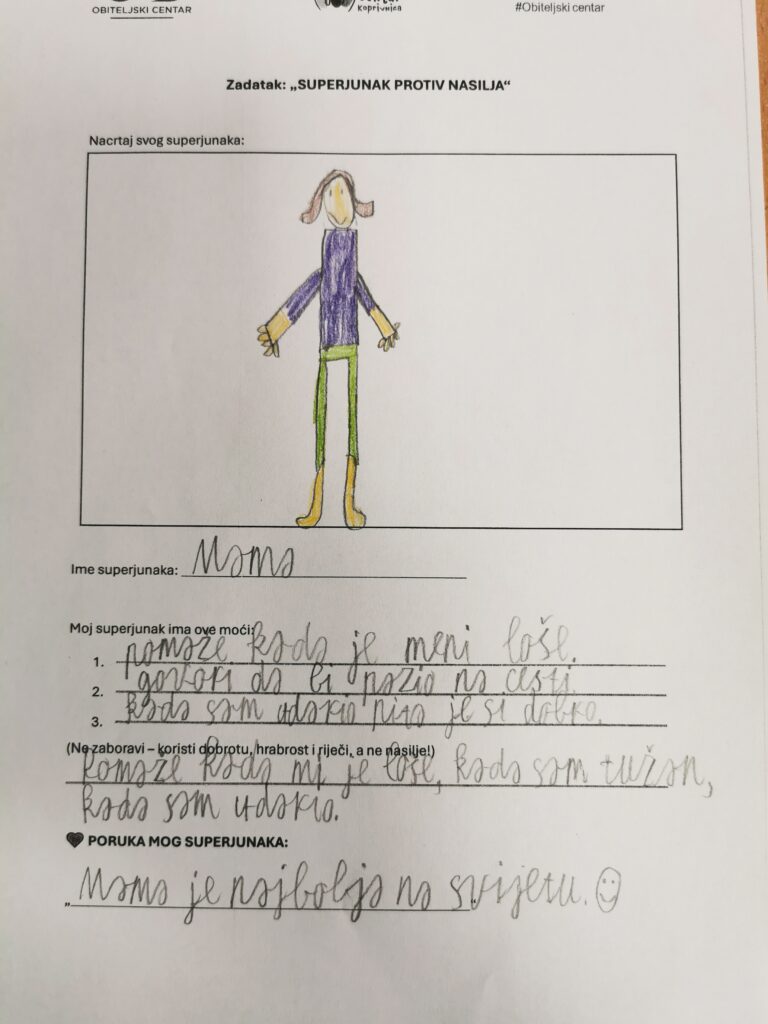 OBITELJSKI CENTAR
koprivnica
#Obiteljski centar
Zadatak: „SUPERJUNAK PROTIV NASILJA“
Nacrtaj svog superjunaka:
Ime superjunaka: Mama
Moj superjunak ima ove moći:
1. pomaže kada je meni loše.
2. govori da bi pazio na cesti
3. kada sam udario pita je si dobro.
(Ne zaboravi – koristi dobrotu, hrabrost i riječi, a ne nasilje!)
Pomaže kada mi je loše, kada sam tužan,
kada sam udario.
PORUKA MOG SUPERJUNAKA:
„Mama je najbolja na svijetu.